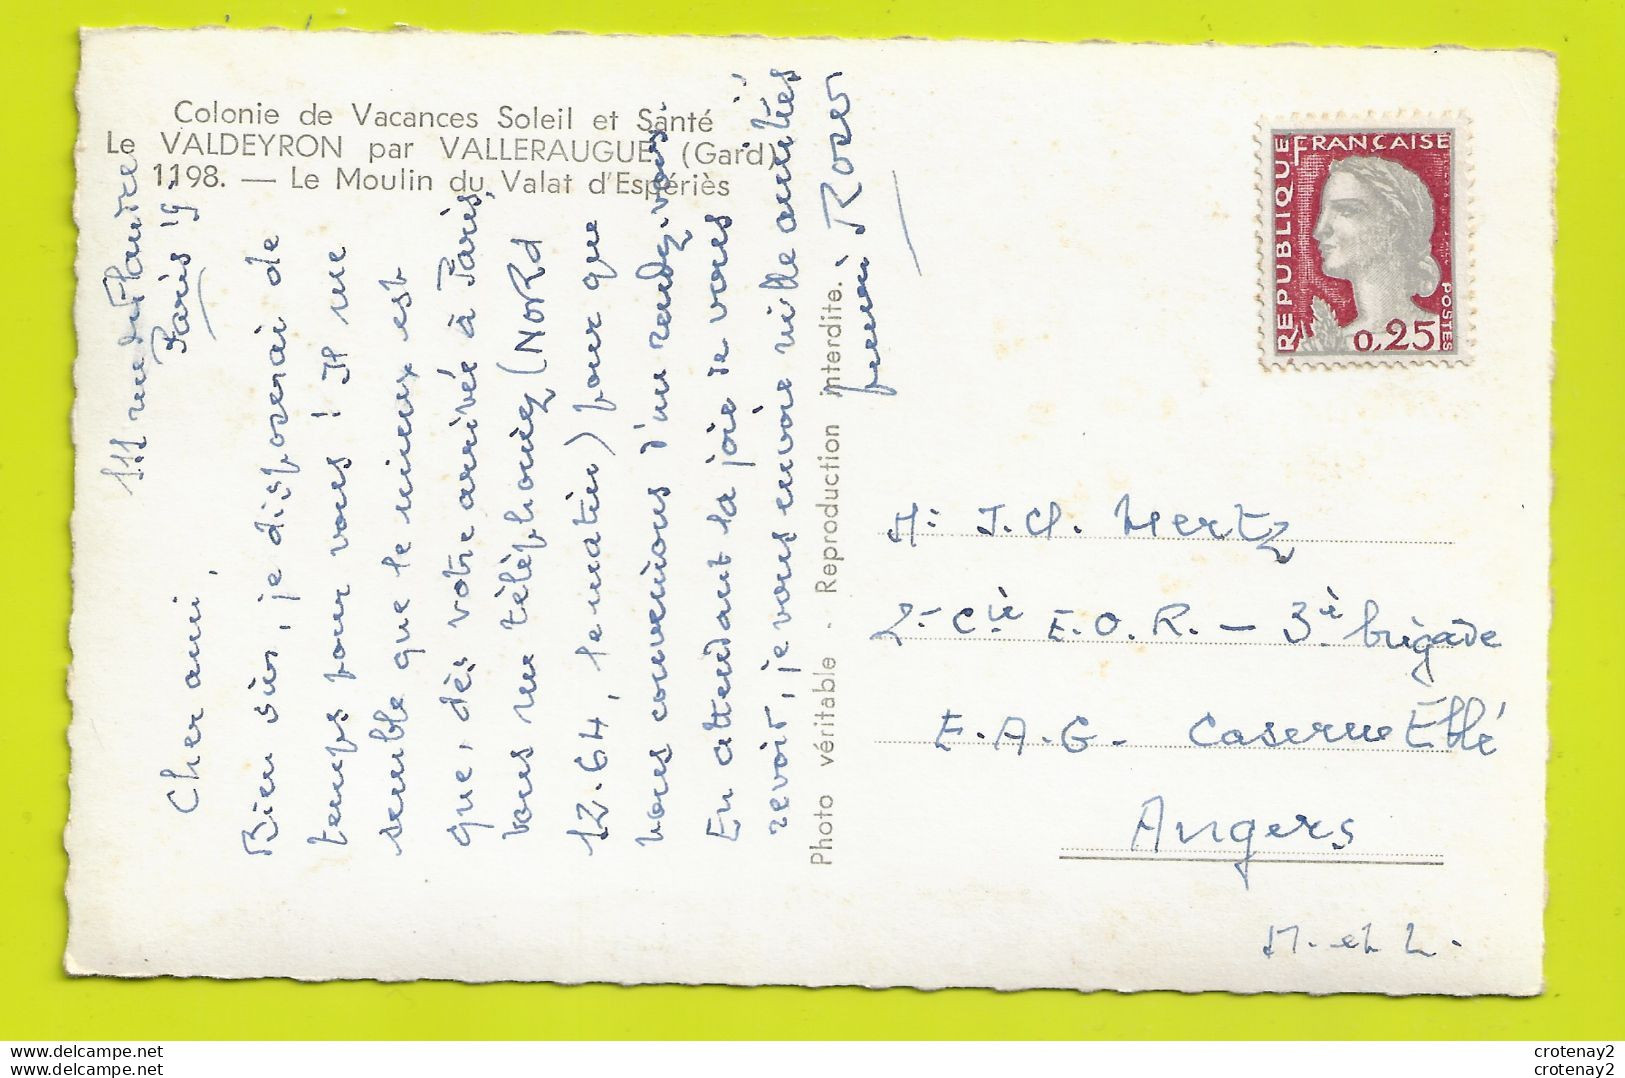 Colonie de Vacances Soleil et Santé
Le VALDEYRON par VALLERAUGUE (Gard)
1198. — Le Moulin du Valat d'Espériès
111 rue de Flandre
Paris 19
Cher ami,
Bien sûr, je disposerai de
temps pour vous ! Il me
semble que le mieux est
que, dès votre arrivée à Paris,
vous me téléphoniez (NORd
12.64, le matin) pour que
nous convenions d'un rendez-vous.
En attendant la joie de vous
revoir, je vous envoie mille amitiés
Photo véritable - Reproduction interdite.
REPUBLIQUE FRANÇAISE
POSTES
0,25
Mr J.Cl. Mertz
2e Cie E.O.R. — 3è brigade
E.A.G. Caserne Eblé
Angers
M. et L.
crotenay2.delcampe.net
crotenay2
crotenay2